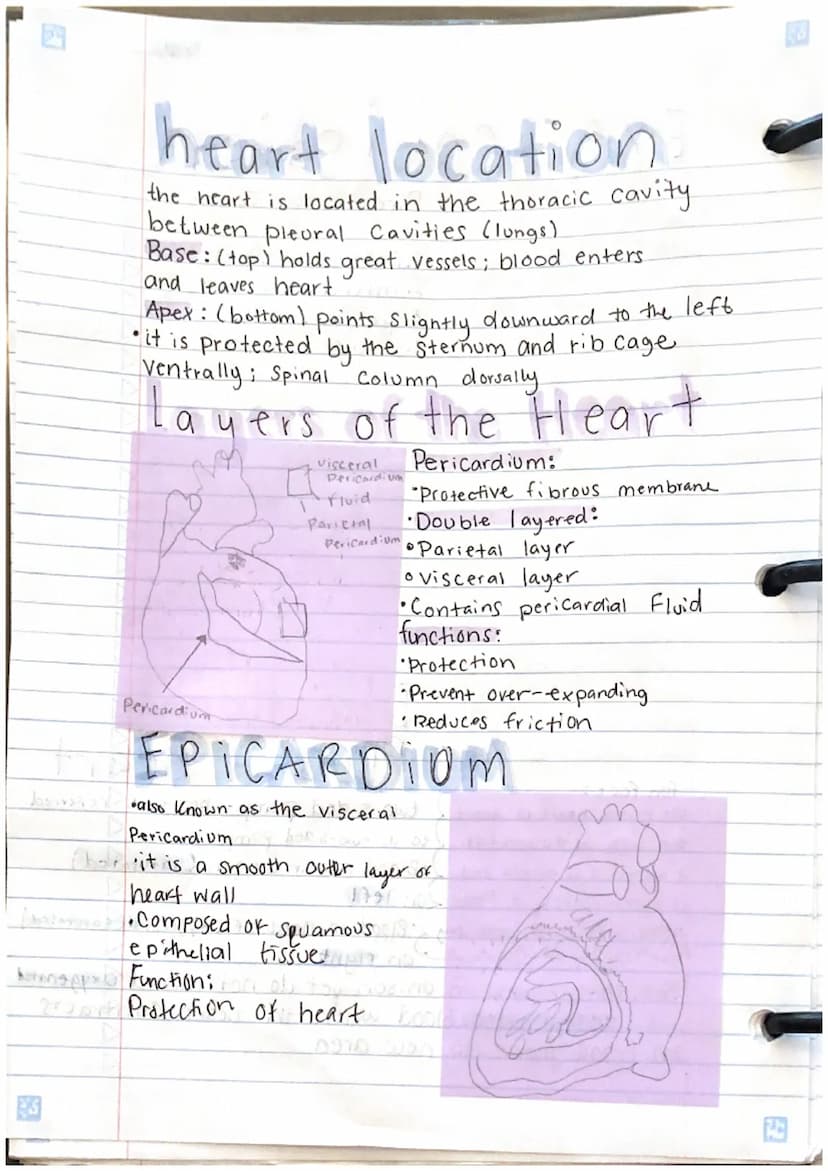 heart location
the heart is located in the thoracic cavity
between pleural cavities (lungs)
Base: (top) holds great vessels; blood enters
and leaves heart
Apex: (bottom) points slightly downward to the left
•it is protected by the sternum and rib cage
ventrally; spinal column dorsally
Layers of the Heart
visceral
Pericardium
fluid
Parietal
Pericardium
Pericardium
Pericardium:
•Protective fibrous membrane
•Double layered:
•Parietal layer
•visceral layer
•Contains pericardial Fluid
functions:
•Protection
•Prevent over-expanding
•Reduces friction
EPiCARDiUM
•also known as the visceral
Pericardium
•it is a smooth outer layer of
heart wall
•Composed of squamous
epithelial tissue
Function:
Protection of heart